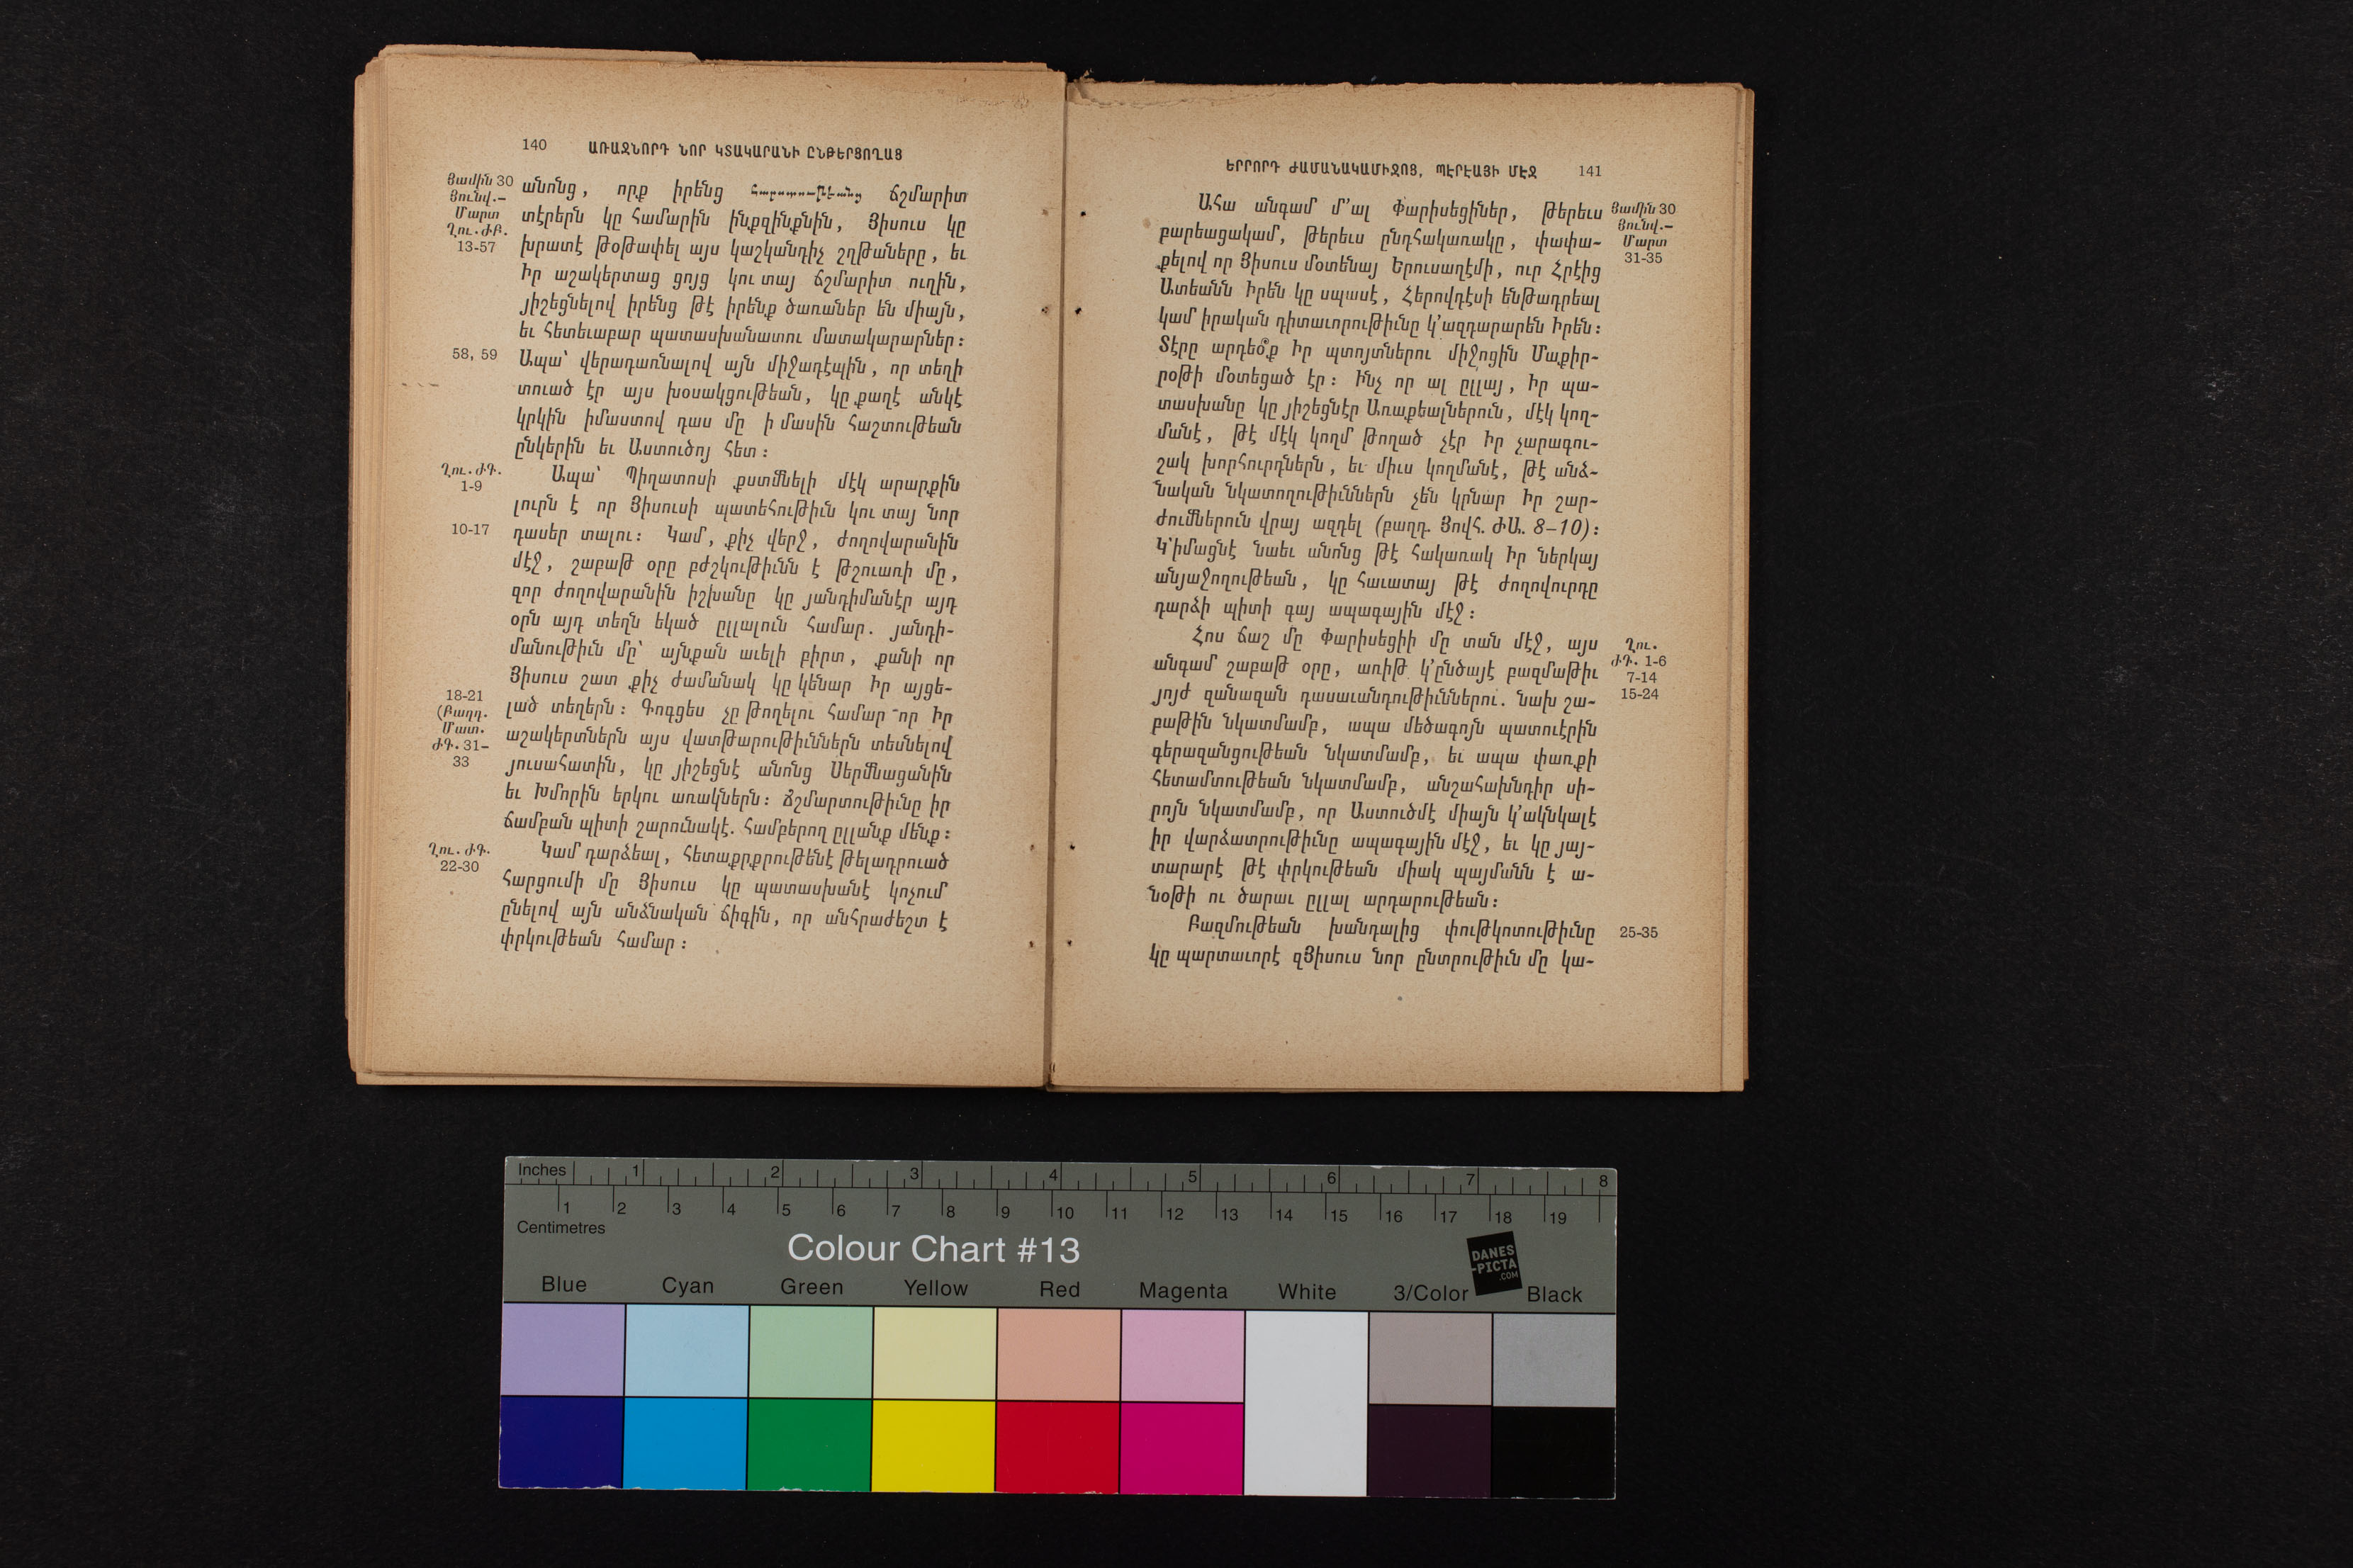 140 ԱՌԱՋՆՈՐԴ ՆՈՐ ԿՏԱԿԱՐԱՆԻ ԸՆԹԵՐՑՈՂԱՑ
Յամին 30
Յունվ.–
Մարտ
Ղու. ԺԲ.
13-57
անոնց, որք իրենց հարստութեանց ճշմարիտ
տէրերն կը համարին ինքզինքնին, Յիսուս կը
խրատէ թօթափել այս կաշկանդիչ շղթաները, եւ
Իր աշակերտաց ցոյց կու տայ ճշմարիտ ուղին,
յիշեցնելով իրենց թէ իրենք ծառաներ են միայն,
եւ հետեւաբար պատասխանատու մատակարարներ:
58, 59
Ապա՝ վերադառնալով այն միջադէպին, որ տեղի
տուած էր այս խօսակցութեան, կը քաղէ անկէ
կրկին իմաստով դաս մը ի մասին հաշտութեան
ընկերին եւ Աստուծոյ հետ:
Ղու. ԺԳ.
1-9
Ապա՝ Պիղատոսի քստմնելի մէկ արարքին
լուրն է որ Յիսուսի պատեհութիւն կու տայ նոր
10-17
դասեր տալու: Կամ, քիչ վերջ, ժողովարանին
մէջ, շաբաթ օրը բժշկութիւնն է թշուառի մը,
զոր ժողովարանին իշխանը կը յանդիմանէր այդ
օրն այդ տեղն եկած ըլլալուն համար. յանդի-
մանութիւն մը՝ այնքան աւելի բիրտ, քանի որ
Յիսուս շատ քիչ ժամանակ կը կենար Իր այցե-
18-21
(Բաղդ.
Մատ.
ԺԳ. 31–
33
լած տեղերն: Գոգցես չը թողելու համար որ Իր
աշակերտներն այս վատթարութիւններն տեսնելով
յուսահատին, կը յիշեցնէ անոնց Սերմնացանին
եւ Խմորին երկու առակներն: Ճշմարտութիւնը իր
ճամբան պիտի շարունակէ. համբերող ըլլանք մենք:
Ղու. ԺԳ.
22-30
Կամ դարձեալ, հետաքրքրութենէ թելադրուած
հարցումի մը Յիսուս կը պատասխանէ կոչում
ընելով այն անձնական ճիգին, որ անհրաժեշտ է
փրկութեան համար:
ԵՐՐՈՐԴ ԺԱՄԱՆԱԿԱՄԻՋՈՑ, ՊԷՐԷԱՅԻ ՄԷՋ 141
Յամին 30
Յունվ.–
Մարտ
31-35
Ահա անգամ մ՚ալ Փարիսեցիներ, թերեւս
բարեացակամ, թերեւս ընդհակառակը, փափա-
քելով որ Յիսուս մօտենայ Երուսաղէմի, ուր Հրէից
Ատեանն Իրեն կը սպասէ, Հերովդէսի ենթադրեալ
կամ իրական դիտաւորութիւնը կ՚ազդարարեն Իրեն:
Տէրը արդեօ՞ք Իր պտոյտներու միջոցին Մաքիր-
րօթի մօտեցած էր: Ինչ որ ալ ըլլայ, Իր պա-
տասխանը կը յիշեցնէր Առաքեալներուն, մէկ կող-
մանէ, թէ մէկ կողմ թողած չէր Իր չարագու-
շակ խորհուրդներն, եւ միւս կողմանէ, թէ անձ-
նական նկատողութիւններն չեն կրնար Իր շար-
ժումներուն վրայ ազդել (բաղդ. Յովհ. ԺԱ. 8–10):
Կ՚իմացնէ նաեւ անոնց թէ հակառակ Իր ներկայ
անյաջողութեան, կը հաւատայ թէ ժողովուրդը
դարձի պիտի գայ ապագային մէջ:
Ղու.
ԺԴ. 1-6
7-14
15-24
Հոս ճաշ մը Փարիսեցիի մը տան մէջ, այս
անգամ շաբաթ օրը, առիթ կ՚ընծայէ բազմաթիւ
յոյժ զանազան դասաւանդութիւններու. նախ շա-
բաթին նկատմամբ, ապա մեծագոյն պատուէրին
գերազանցութեան նկատմամբ, եւ ապա փառքի
հետամտութեան նկատմամբ, անշահախնդիր սի-
րոյն նկատմամբ, որ Աստուծմէ միայն կ՚ակնկալէ
իր վարձատրութիւնը ապագային մէջ, եւ կը յայ-
տարարէ թէ փրկութեան միակ պայմանն է ա-
նօթի ու ծարաւ ըլլալ արդարութեան:
25-35
Բազմութեան խանդալից փութկոտութիւնը
կը պարտաւորէ զՅիսուս նոր ընտրութիւն մը կա-
Inches 1 2 3 4 5 6 7 8
1 2 3 4 5 6 7 8 9 10 11 12 13 14 15 16 17 18 19
Centimetres
Colour Chart #13
DANES
-PICTA
.COM
Blue Cyan Green Yellow Red Magenta White 3/Color Black